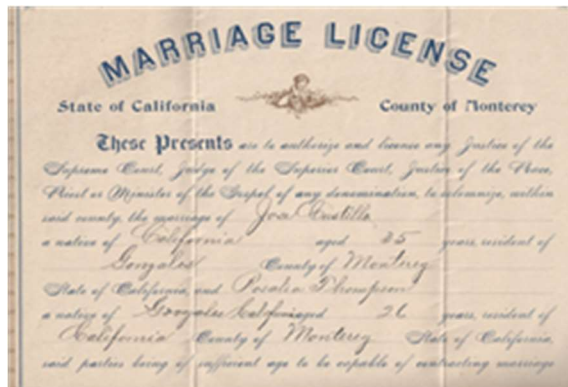 MARRIAGE LICENSE
State of California County of Monterey
These Presents are to authorize and license any Justice of the
Supreme Court, Judge of the Superior Court, Justice of the Peace,
Priest or Minister of the Gospel of any denomination, to solemnize, within
said county, the marriage of Jose Castillo
a native of California aged years, resident of
Gonzales County of Monterey
State of California, and Rosalia Thompson
a native of Gonzales California aged 26 years, resident of
California County of Monterey State of California,
said parties being of sufficient age to be capable of contracting marriage